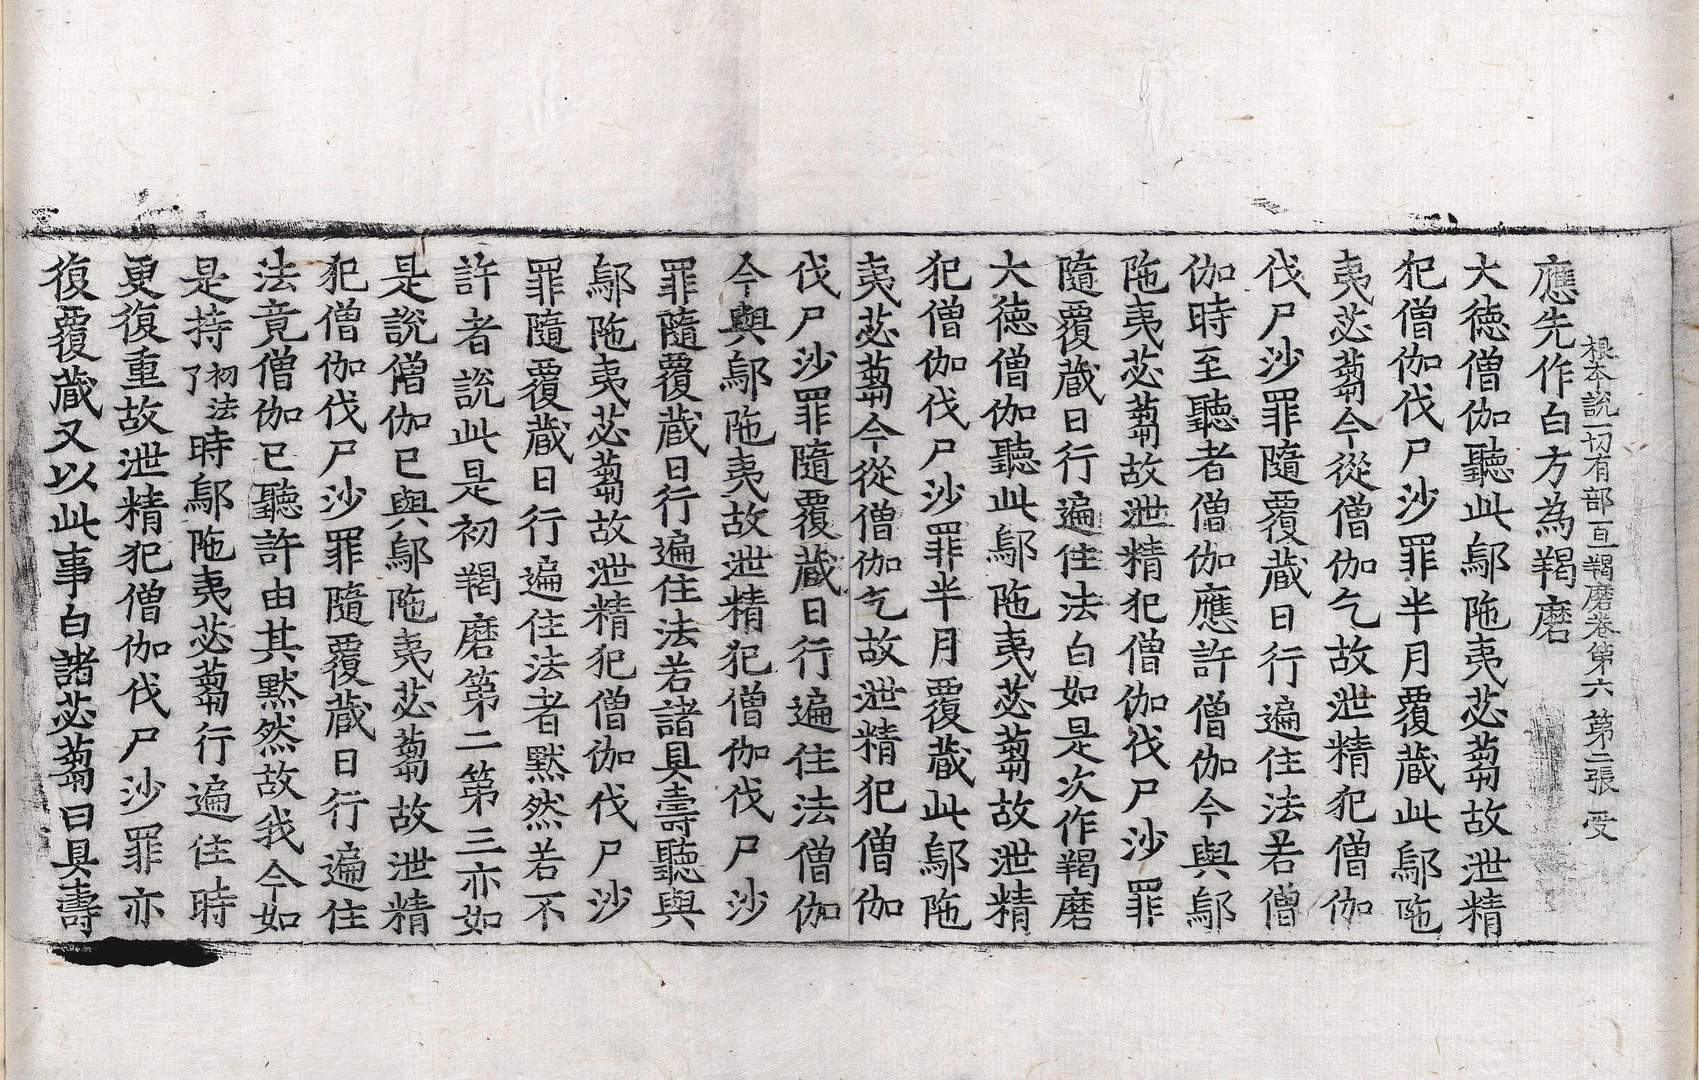 根本說一切有部百一羯磨卷第六 第二張 受
應先作白方為羯磨
大德僧伽聽此鄔陁夷苾蒭故泄精
犯僧伽伐尸沙罪半月覆藏此鄔陁
夷苾蒭今從僧伽乞故泄精犯僧伽
伐尸沙罪隨覆藏日行遍住法若僧
伽時至聽者僧伽應許僧伽今與鄔
陁夷苾蒭故泄精犯僧伽伐尸沙罪
隨覆藏日行遍住法白如是次作羯磨
大德僧伽聽此鄔陁夷苾蒭故泄精
犯僧伽伐尸沙罪半月覆藏此鄔陁
夷苾蒭今從僧伽乞故泄精犯僧伽
伐尸沙罪隨覆藏日行遍住法僧伽
今與鄔陁夷故泄精犯僧伽伐尸沙
罪隨覆藏日行遍住法若諸具壽聽與
鄔陁夷苾蒭故泄精犯僧伽伐尸沙
罪隨覆藏日行遍住法者默然若不
許者說此是初羯磨第二第三亦如
是說僧伽已與鄔陁夷苾蒭故泄精
犯僧伽伐尸沙罪隨覆藏日行遍住
法竟僧伽已聽許由其默然故我今如
是持初法了時鄔陁夷苾蒭行遍住時
更復重故泄精犯僧伽伐尸沙罪亦
復覆藏又以此事白諸苾蒭曰具壽